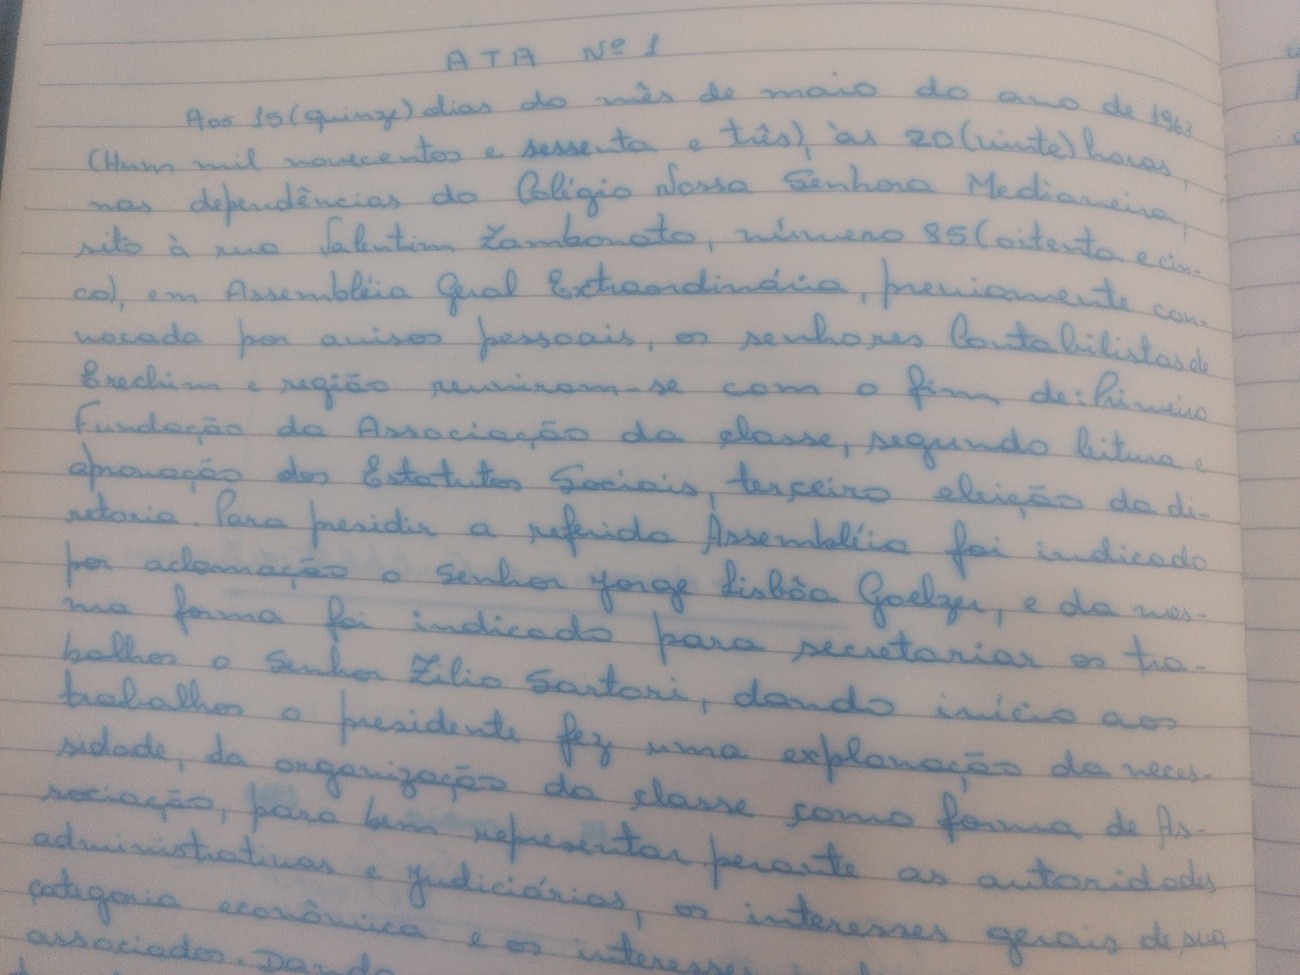 ATA Nº 1
Aos 15 (quinze) dias do mês de maio do ano de 1963
(Hum mil novecentos e sessenta e três), às 20 (vinte) horas,
nas dependências do Colégio Nossa Senhora Medianeira,
sito à rua Valentim Zambonato, número 85 (oitenta e cin-
co), em Assembléia Geral Extraordinária, previamente con-
vocada por avisos pessoais, os senhores Contabilistas de
Erechim e região reuniram-se com o fim de: Primeiro
Fundação da Associação da classe, segundo leitura e
aprovação dos Estatutos Sociais, terceiro eleição da di-
retoria. Para presidir a referida Assembléia foi indicado
por aclamação o Senhor Jorge Lisbôa Goelzer, e da mes-
ma forma foi indicado para secretariar os tra-
balhos o Senhor Zilio Sartori, dando início aos
trabalhos o presidente fez uma explanação da neces-
sidade, da organização da classe como forma de As-
sociação, para bem representar perante as autoridades
administrativas e judiciárias, os interesses gerais de sua
categoria econômica e os interesses
associados. Dando